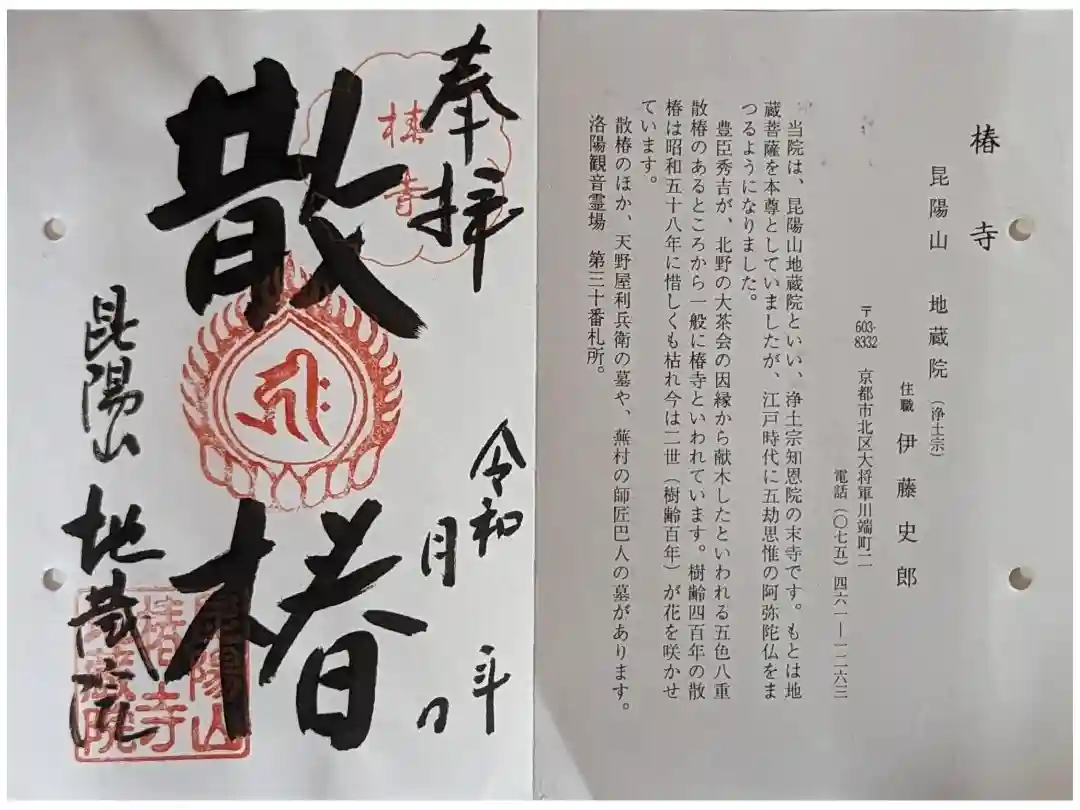 椿寺
昆陽山　地蔵院（浄土宗）
住職　伊藤史郎
〒603-8332　京都市北区大将軍川端町二
電話（〇七五）四六一―一二六三
当院は、昆陽山地蔵院といい、浄土宗知恩院の末寺です。もとは地
蔵菩薩を本尊としていましたが、江戸時代に五劫思惟の阿弥陀仏をま
つるようになりました。
豊臣秀吉が、北野の大茶会の因縁から献木したといわれる五色八重
散椿のあるところから一般に椿寺といわれています。樹齢四百年の散
椿は昭和五十八年に惜しくも枯れ今は二世（樹齢百年）が花を咲かせ
ています。
散椿のほか、天野屋利兵衛の墓や、蕪村の師匠巴人の墓があります。
洛陽観音霊場　第三十番札所。
奉拝
椿寺
令和　年
月　日
散椿
昆陽山
地蔵院
昆陽山
椿寺
地蔵院